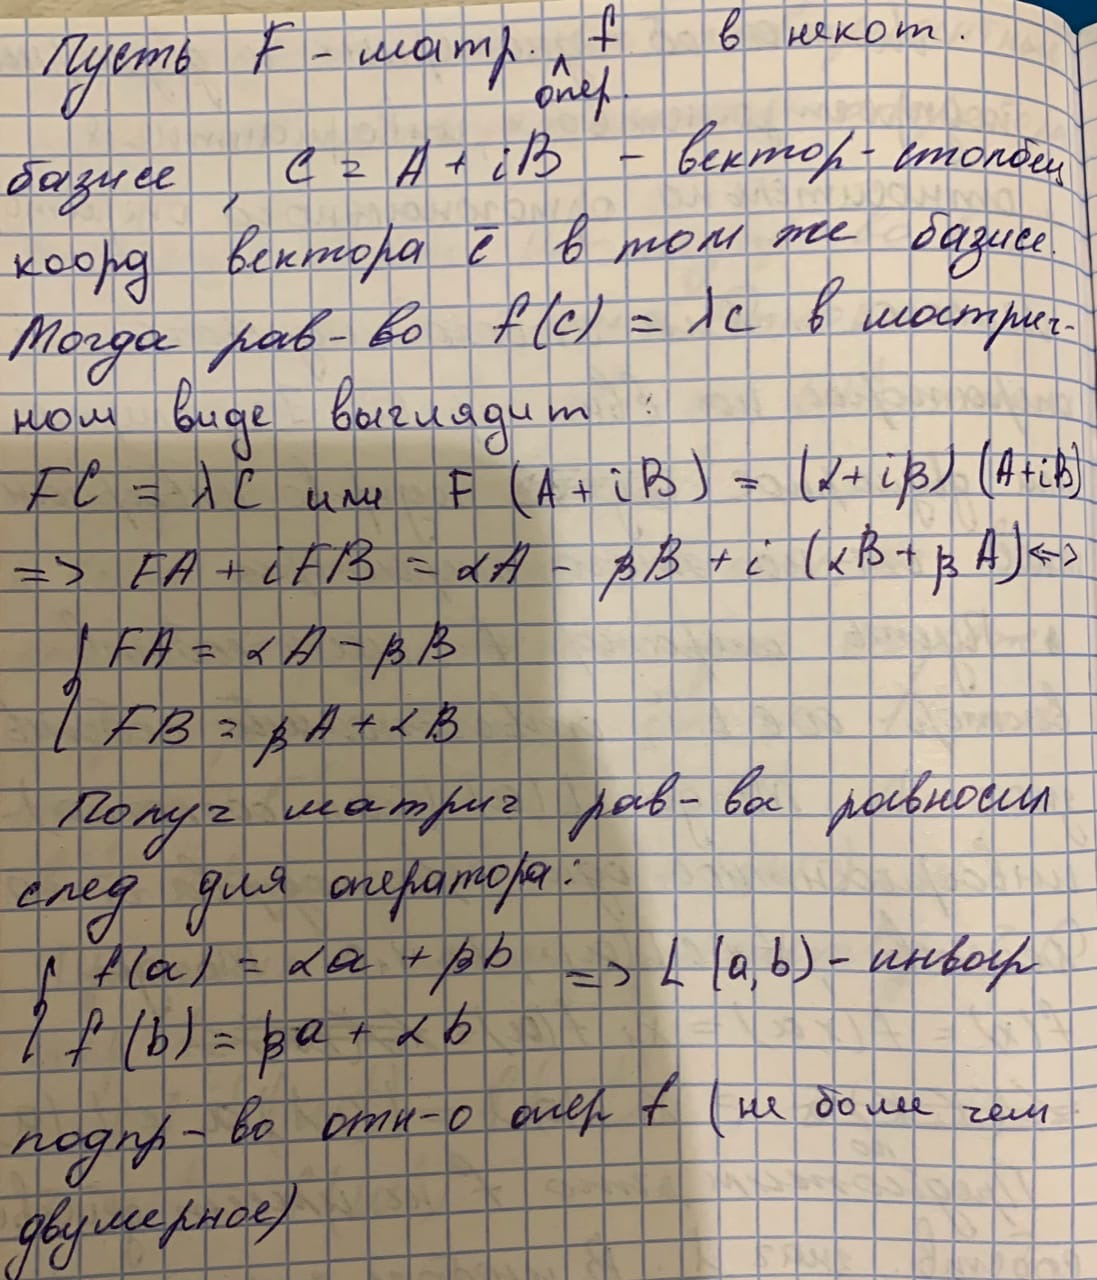 Пусть F - матр. f в некот.
^
опер.
базисе, C = A + iB - вектор-столбец
коорд вектора c̄ в том же базисе.
Тогда рав-во f(c) = λc в матрич-
ном виде выглядит:
FC = λC или F (A + iB) = (α + iβ) (A+iB)
=> FA + iFB = αA - βB + i (αB + βA) <=>
{ FA = αA - βB
FB = βA + αB
Получ матрич рав-ва равносил
след для оператора:
{ f(a) = αa + βb => L (a,b) - инвар
f (b) = βa + αb
подпр-во отн-о опер f (не более чем
двумерное)